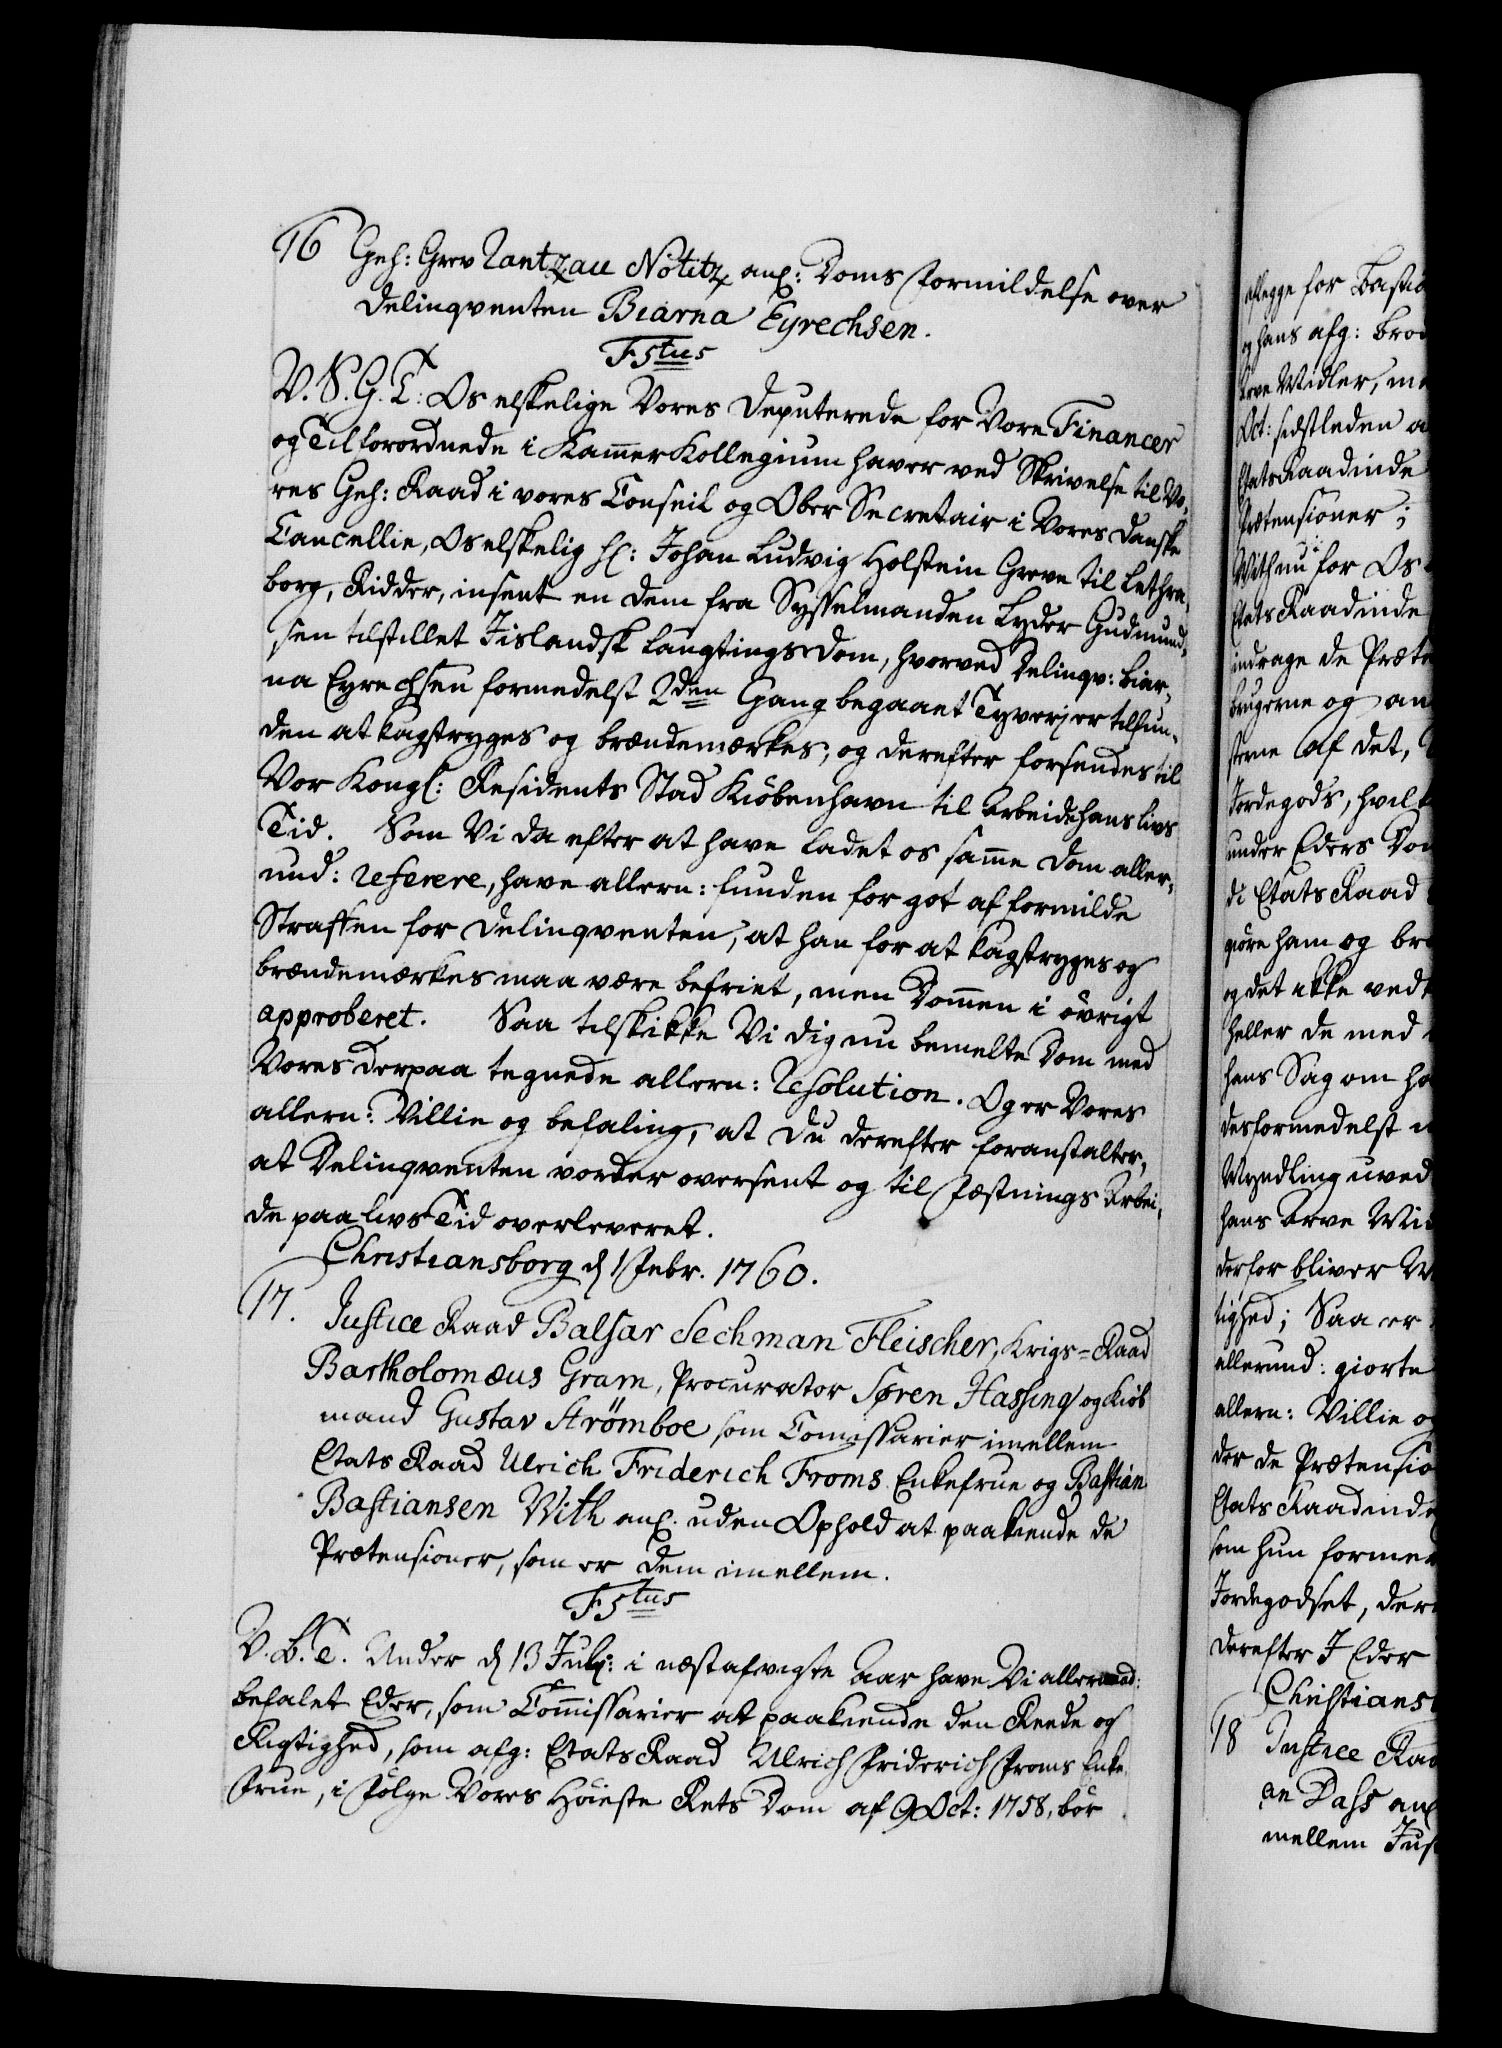 16 Geh: Grev Rantzau Notitz anl: Doms formildelse over
Delinqventen Biarna Eyrechsen.
F5tus
V. S. G. T: Os elskelige Vores Deputerede for Vore Financer
og Tilforordnede i Kammer Kollegium haver ved Skrivelse til Vo-
res Geh: Raad i vores Conseil og Ober Secretair i Vores Danske
Cancellie, Os elskelig Hl: Johan Ludvig Holstein Greve til Lethra-
borg, Ridder, insent en dem fra Sysselmanden Lyder Gudmund-
sen tilstillet Jislandsk Laugtings Dom, hvorved Delinqv: Biar-
na Eyrechsen formedelst 2den Gang begaaet Tyverj er tilfun-
den at kagstryges og brændemærkes, og derefter forsendes til
Vor Kongl: Residents Stad Kiöbenhavn til Arbeide hans livs
Tid. Som Vi da efter at have ladet os samme Dom aller-
und: referere, have allern: funden for got af formilde
Straffen for Delinqventen, at han for at kagstryges og
brændemærkes maa være befriet, men Dommen i övrigt
approberet. Saa tilskikke Vi dig nu bemelte Dom med
Vores derpaa tegnede allern: Resolution. Og er Vores
allern: Villie og befaling, at Du derefter foranstalter,
at Delinqventen vorder oversent og til Fæstnings Arbei-
de paa livs Tid overleveret.
Christiansborg d 1 Febr. 1760.
17. Justice Raad Balsar Sechman Fleischer, Krigs-Raad
Bartholomæus Gram, Procurator Søren Hassing og Kiöb
mand Gustav Strömboe som Commissarier imellem
Etats Raad Ulrich Friderich Froms Enkefrue og Bastian
Bastiansen With anl. uden Ophold at paakiende de
Prætensioner, som er dem imellem.
F5tus
V. B. T. Under d 13 Julj: i næstafvigte Aar have Vi allernaad:
befalet Eder, som Commissarier at paakiende den Reede og
Rigtighed, som afg: Etats Raad Ulrich Friderich Froms Enke
Frue, i Fölge Vores Höieste Rets Dom af 9 Oct: 1758, bör
aflegge for Bastia
og hans afg: Brod
Arve Midler, me
Oct: sidstleden a
Etats Raadinde
Prætensioner;
With nu for Os
Etats Raadinde
indrage de Præte
brugerne og an
sterne af det,
Jordegods, hvilk
under Eders Dom
di Etats Raad
giöre ham og bro
og det ikke vedk
heller de med
hans Sag om ha
desformedelst
Myndling uved
hans Arve Mid
derfor bliver
tighed; Saa er
allerund: giorte
allern: Villie o
der de Prætensio
Etats Raadinde
som hun forme
Jordegodset, der
derefter J Eder
Christians
18 Justice Raa
an Dass anl
mellem Jus